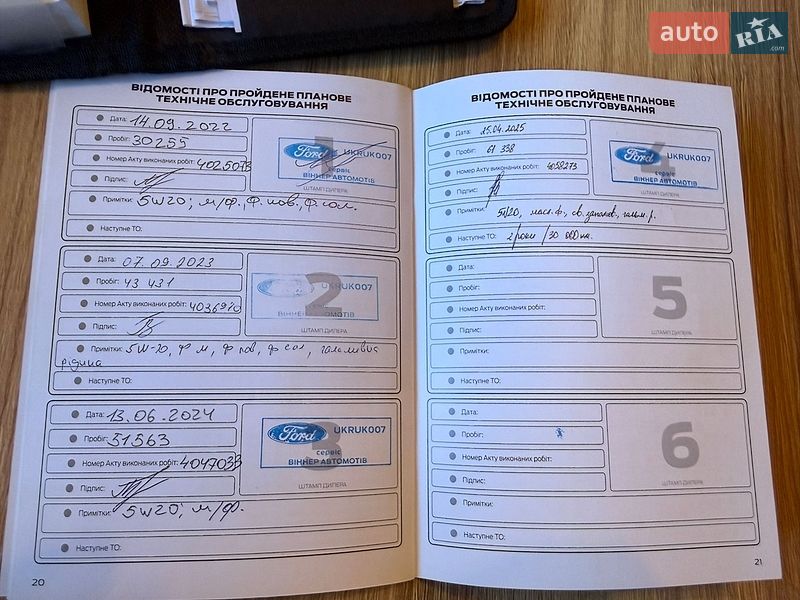 auto RIA .com
ВІДОМОСТІ ПРО ПРОЙДЕНЕ ПЛАНОВЕ
ТЕХНІЧНЕ ОБСЛУГОВУВАННЯ
Дата: 14.09.2022
Пробіг: 30255
Номер Акту виконаних робіт: 4025073
Підпис:
Примітки: 5W20; м/ф. ф. пов., ф. сал.
Наступне ТО:
1
Ford UKRUK007
сервіс
ВІННЕР АВТОМОТІВ
ШТАМП ДИЛЕРА
Дата: 07.09.2023
Пробіг: 43 431
Номер Акту виконаних робіт: 4036970
Підпис:
Примітки: 5W-20, ф м, ф пов, ф сал, гальмівна
рідина
Наступне ТО:
2
UKRUK007
сервіс
ВІННЕР АВТОМОТІВ
ШТАМП ДИЛЕРА
Дата: 13.06.2024
Пробіг: 51563
Номер Акту виконаних робіт: 4047033
Підпис:
Примітки: 5W20; м/ф.
Наступне ТО:
3
Ford UKRUK007
сервіс
ВІННЕР АВТОМОТІВ
ШТАМП ДИЛЕРА
20
ВІДОМОСТІ ПРО ПРОЙДЕНЕ ПЛАНОВЕ
ТЕХНІЧНЕ ОБСЛУГОВУВАННЯ
Дата: 15.04.2025
Пробіг: 61 338
Номер Акту виконаних робіт: 4058273
Підпис:
Примітки: 5W20, масл. ф., св. запалюв., гальм. р.
Наступне ТО: 2 роки / 30 000 км.
4
Ford UKRUK007
сервіс
ВІННЕР АВТОМОТІВ
ШТАМП ДИЛЕРА
Дата:
Пробіг:
Номер Акту виконаних робіт:
Підпис:
Примітки:
Наступне ТО:
5
ШТАМП ДИЛЕРА
Дата:
Пробіг:
Номер Акту виконаних робіт:
Підпис:
Примітки:
Наступне ТО:
6
ШТАМП ДИЛЕРА
21